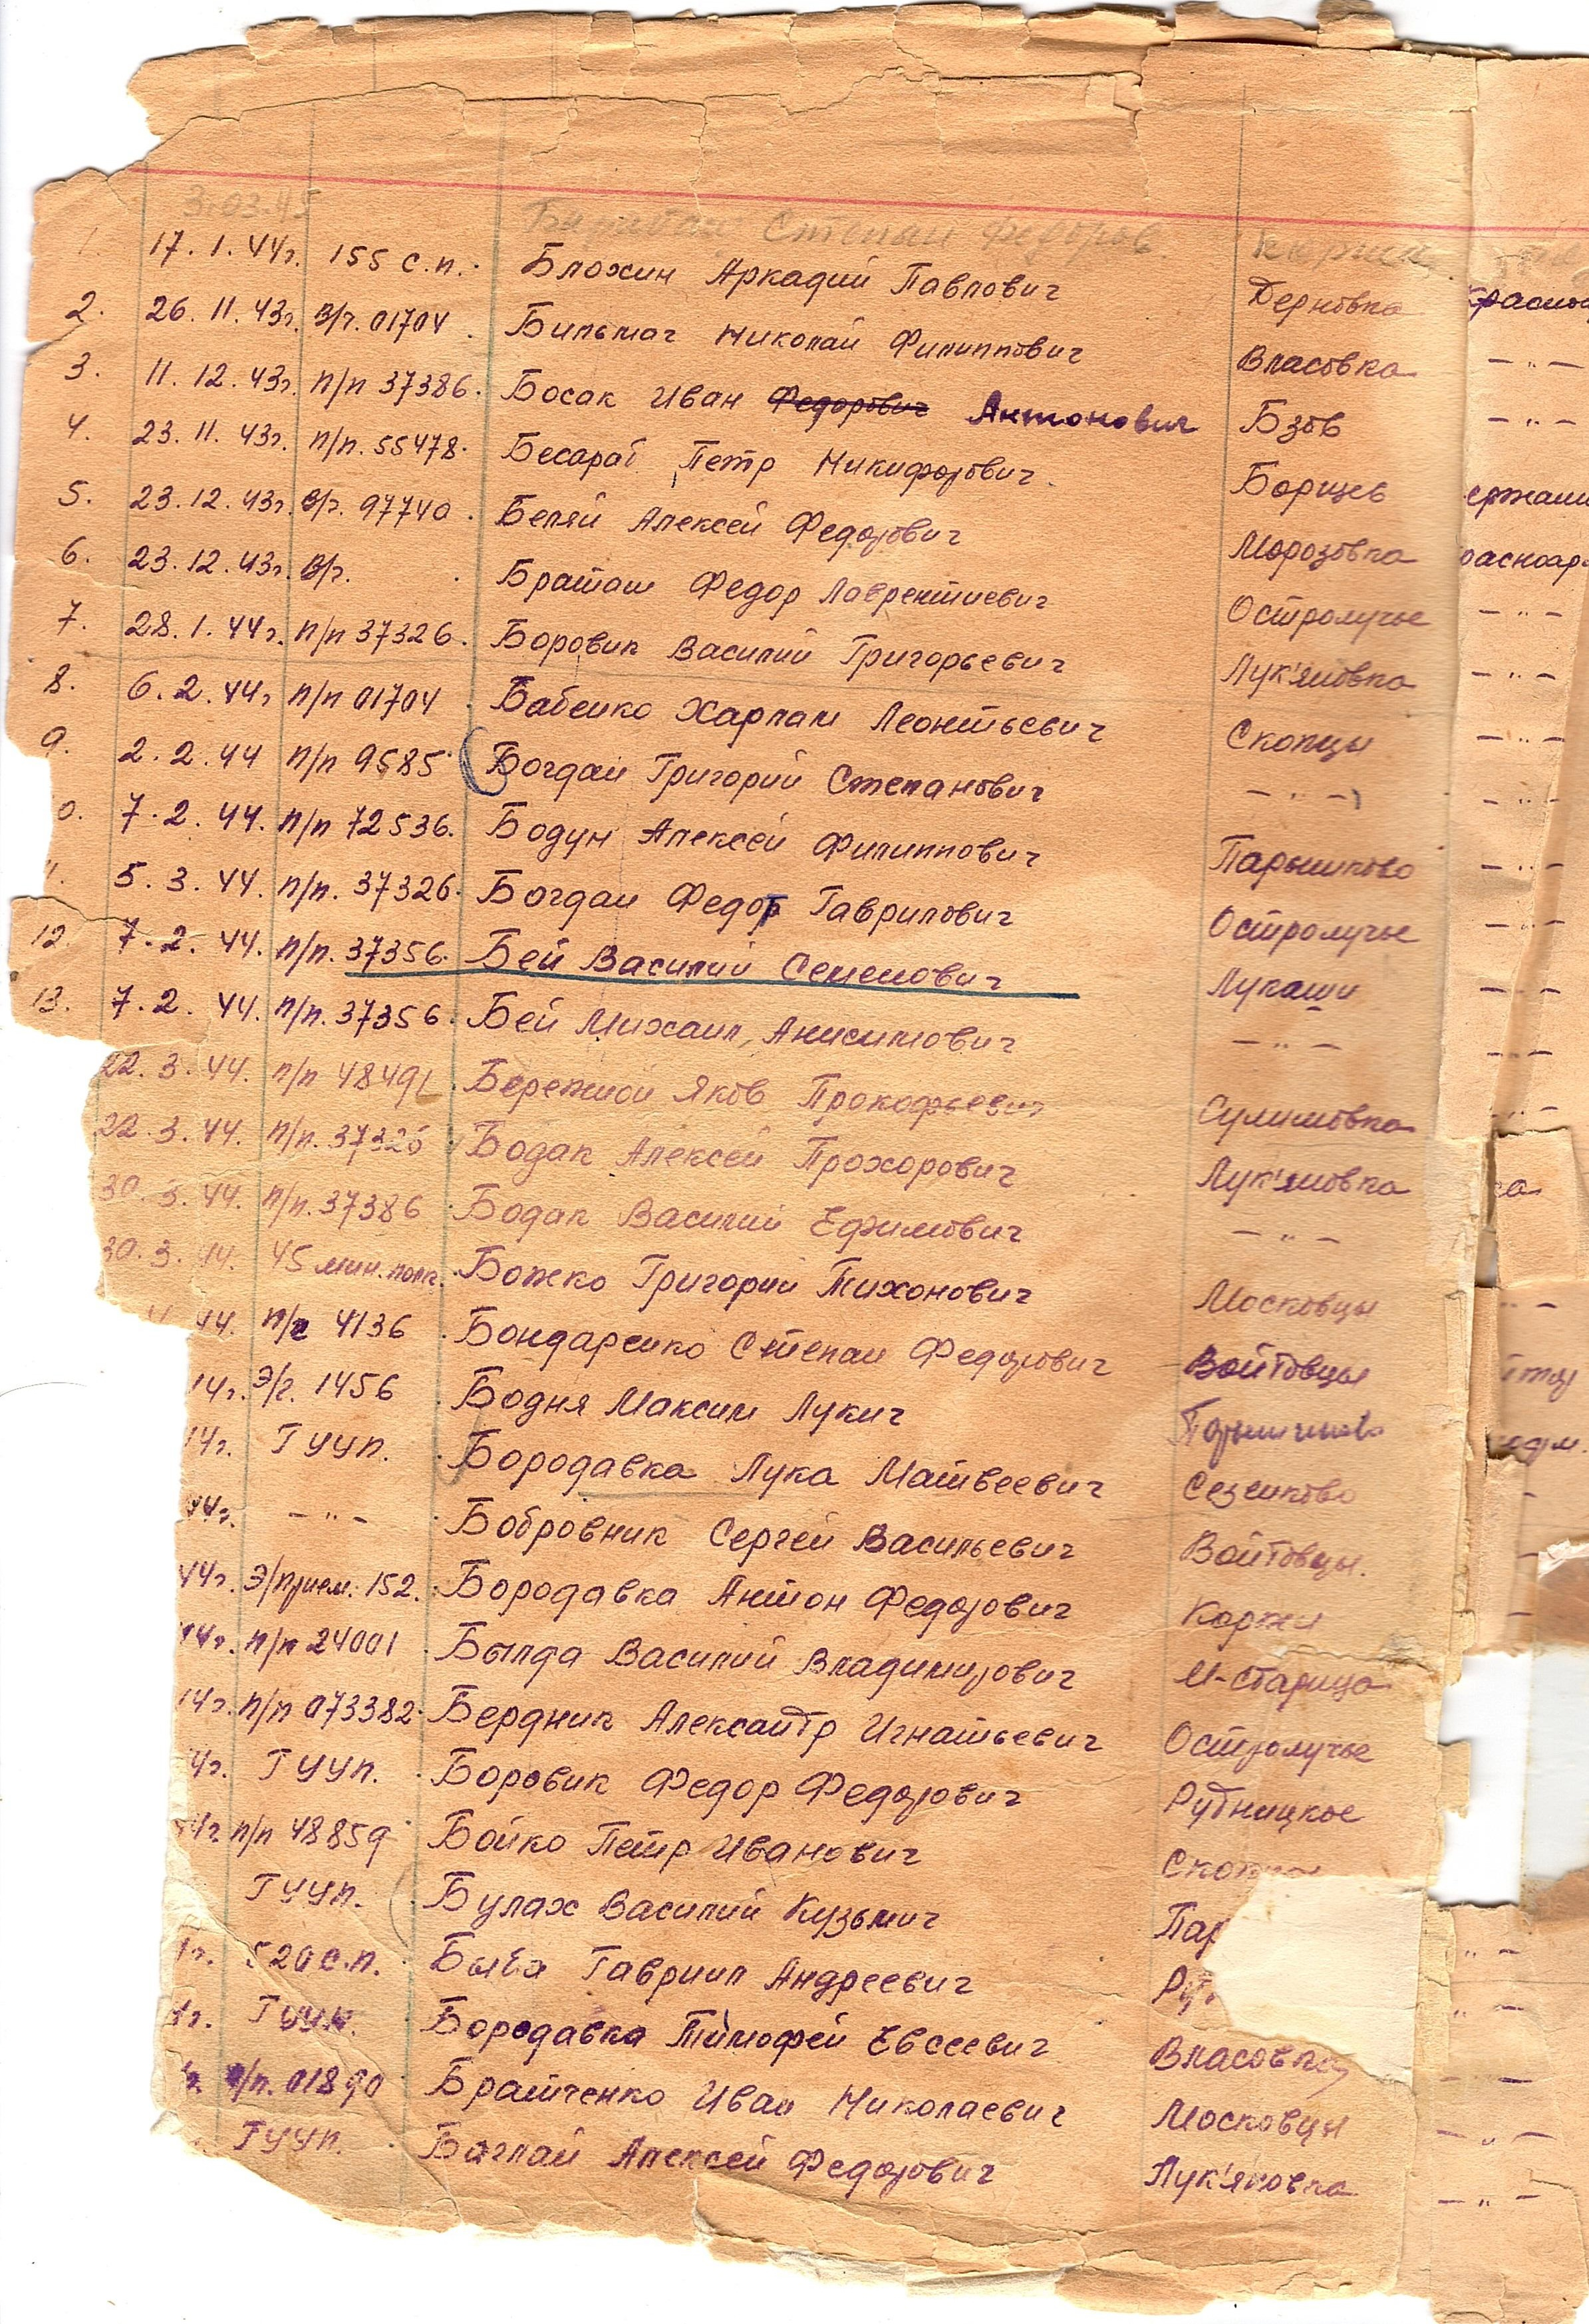 3.03.45 Степан Федоров Коржи
1. 17.1.44г. 155 с.п. Блохин Аркадий Павлович Дерновка
2. 26.11.43г. В/ч. 01704 Бильмач Николай Филиппович Власовка – " –
3. 11.12.43г. п/п 37386. Босак Иван Федорович Антонович Бзов – " –
4. 23.11.43г. п/п. 55478. Бесараб Петр Никифорович Борщев
5. 23.12.43г. В/ч. 97740. Беляй Алексей Федорович Морозовка
6. 23.12.43г. В/ч. Браташ Федор Лаврентиевич Остролучье – " –
7. 28.1.44г. п/п 37326. Боровик Василий Григорьевич Лук'яновка – " –
8. 6.2.44г п/п 01704 Бабенко Харлам Леонтьевич Скопцы – " –
9. 2.2.44 п/п 9585 Богдан Григорий Степанович – " – – " –
0. 7.2.44. п/п 72536. Бодун Алексей Филиппович Парышково – " –
1. 5.3.44. п/п. 37326. Богдан Федор Гаврилович Остролучье – " –
12. 7.2.44. п/п. 37356. Бей Василий Семенович Лукаши – " –
13. 7.2.44. п/п. 37356. Бей Михаил Анисимович – " – – " –
22.3.44. п/п 48491. Бережной Яков Прокофьевич Сулимовка – " –
22.3.44. п/п. 37326 Бодак Алексей Прохорович Лук'яновка
30.3.44. п/п. 37386 Бодак Василий Ефимович – " –
30.3.44. 45 мин. полк. Божко Григорий Тихонович Московцы " –
44. п/ч 4136 Бондаренко Степан Федорович Войтовцы
14г. Э/г. 1456 Бодня Максим Лукич Парышково
14г. ГУУП. Бородавка Лука Матвеевич Сезенково
44г. – " – Бобровник Сергей Васильевич Войтовцы.
44г. Э/прием. 152. Бородавка Антон Федорович Коржи
44г. п/п 24001 Былда Василий Владимирович М-Старица
14г. п/п 073382 Бердник Александр Игнатьевич Остролучье
4г. ГУУП. Боровик Федор Федорович Рудницкое
44г. п/п 48859 Бойко Петр Иванович
ГУУП. Булах Василий Кузьмич Пар
1г. 520 с.п. Быба Гавриил Андреевич " –
4г. ГУУП. Бородавка Тимофей Евсеевич Власовка " –
п/п. 01890 Братченко Иван Николаевич Московцы – " –
ГУУП. Баглай Алексей Федорович Лук'яновка – " –